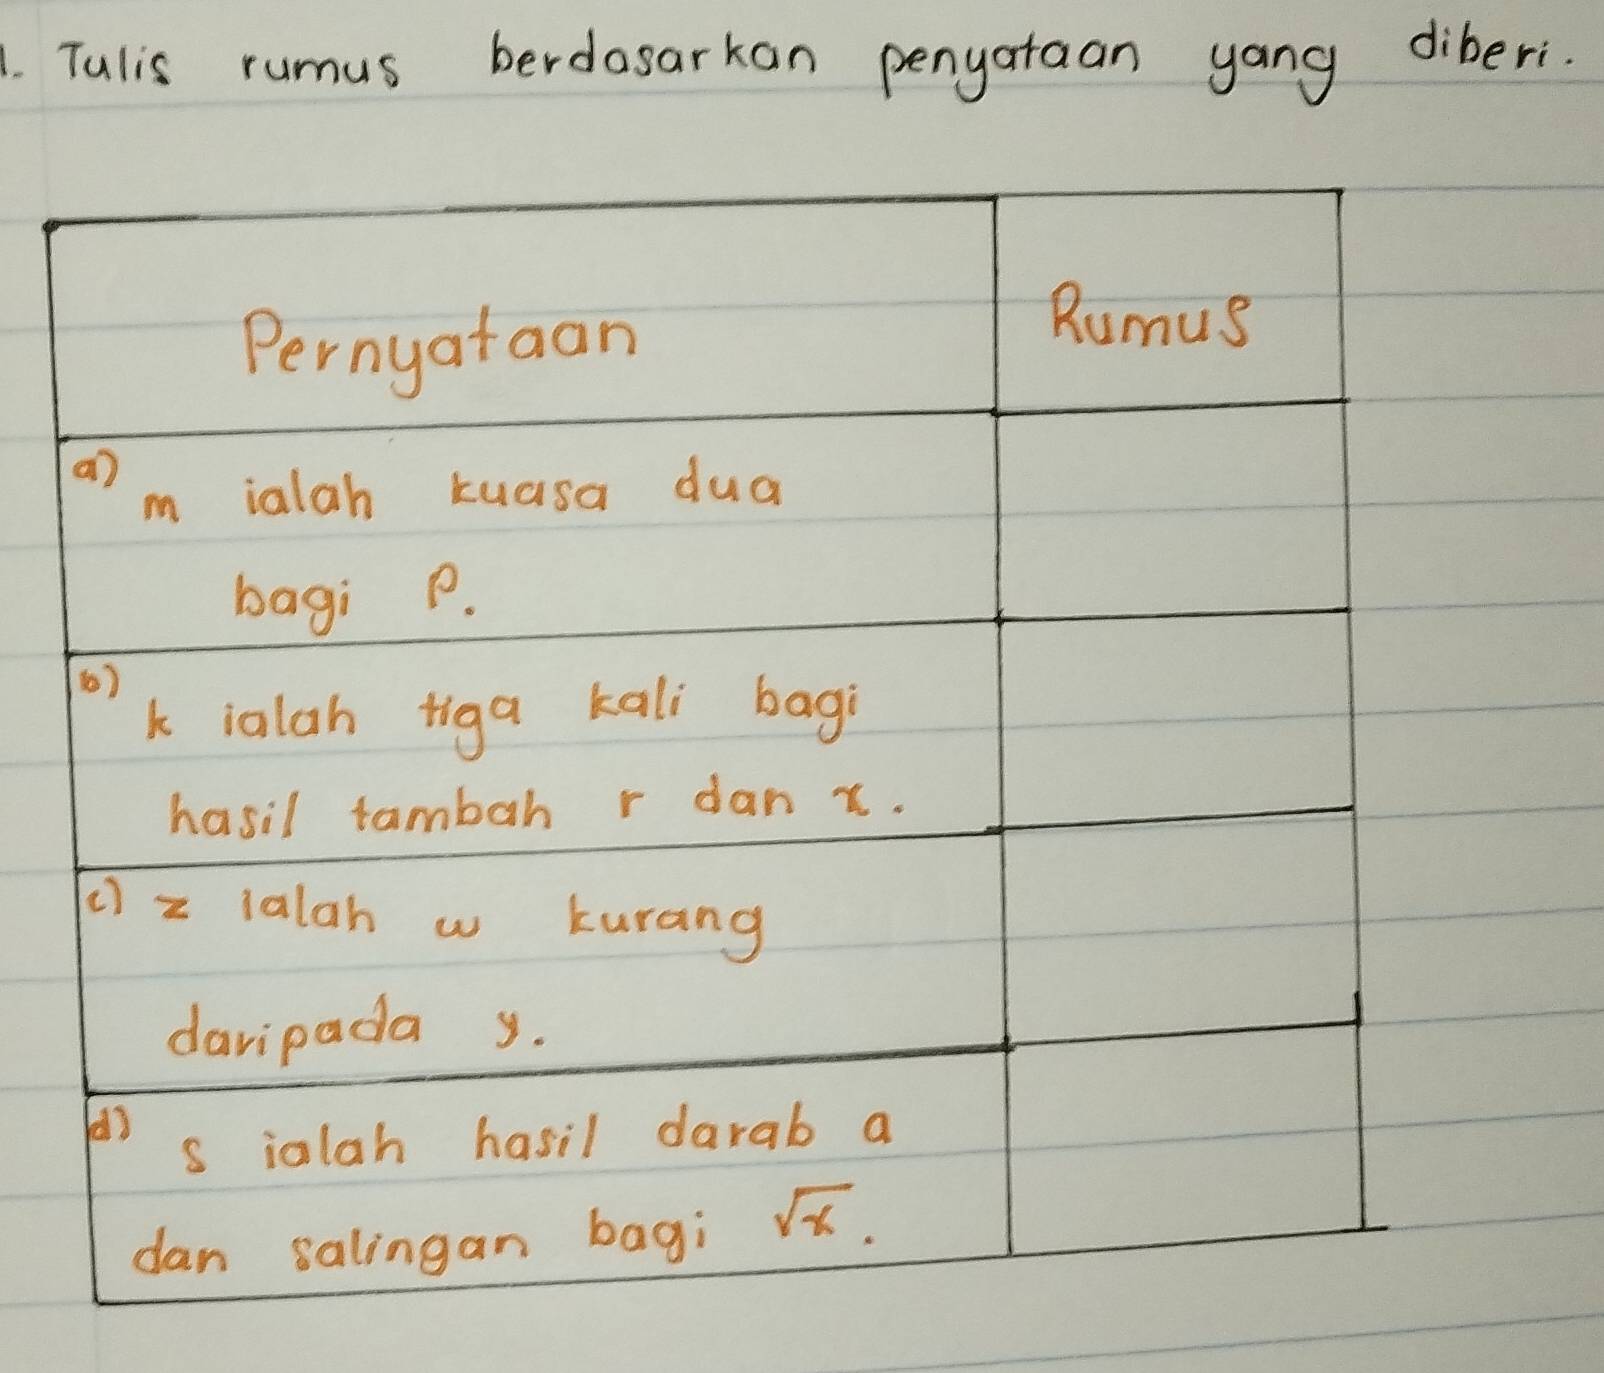 1. Tulis rumus berdasarkan penyataan yang diberi.
Pernyataan Rumus
a) m ialah kuasa dua
bagi P.
b) k ialah tiga kali bagi
hasil tambah r dan x.
c) z ialah w kurang
daripada y.
d) s ialah hasil darab a
dan salingan bagi √x.